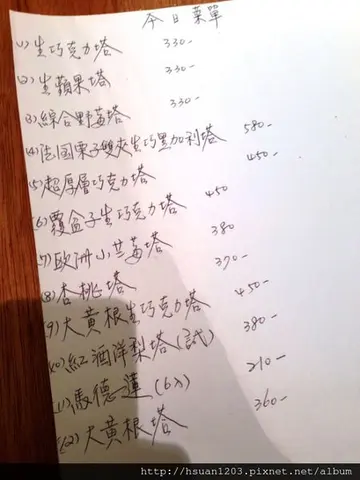 今日菜單
(1) 生巧克力塔 330-
(2) 生蘋果塔 330-
(3) 綜合野莓塔 330-
(4) 法国栗子雙夾生巧黑加利塔 580-
(5) 超厚層巧克力塔 450-
(6) 覆盆子生巧克力塔 450
(7) 欧洲小兰莓塔 380
(8) 杏桃塔
(9) 大黃根生巧克力塔 450-
(10) 紅酒洋梨塔(試) 380-
(11) 馬德蓮(6入) 210-
(12) 大黃根塔 360-
http://hsuan1203.pixnet.net/album